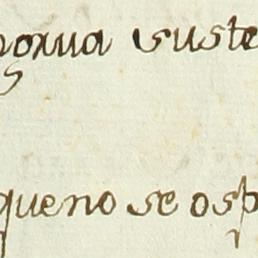 poxua suste
queno se osp